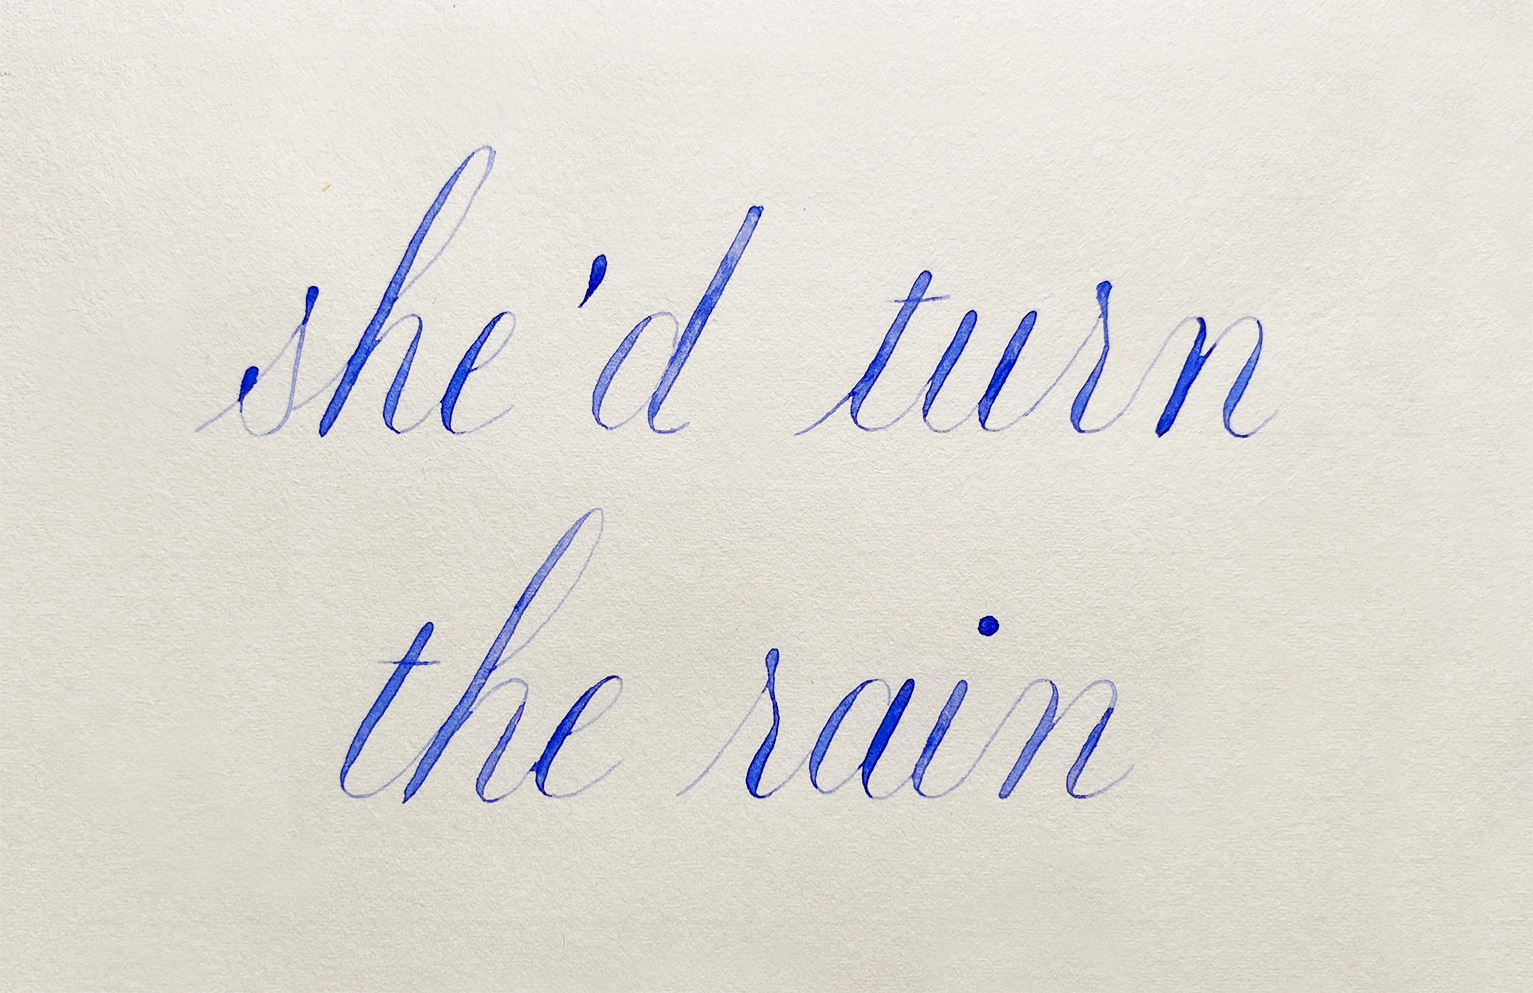 she'd turn
the rain